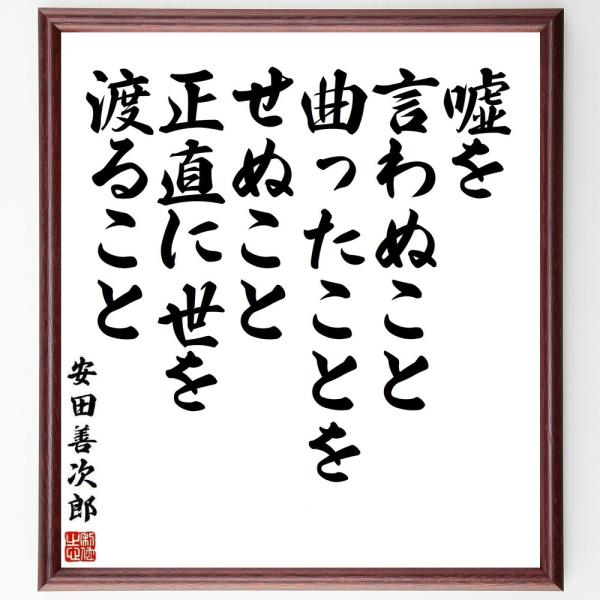 嘘を
言わぬこと
曲ったことを
せぬこと
正直に世を
渡ること
安田善次郎